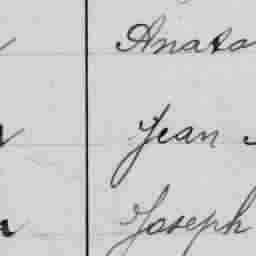 Anato
Jean
Joseph